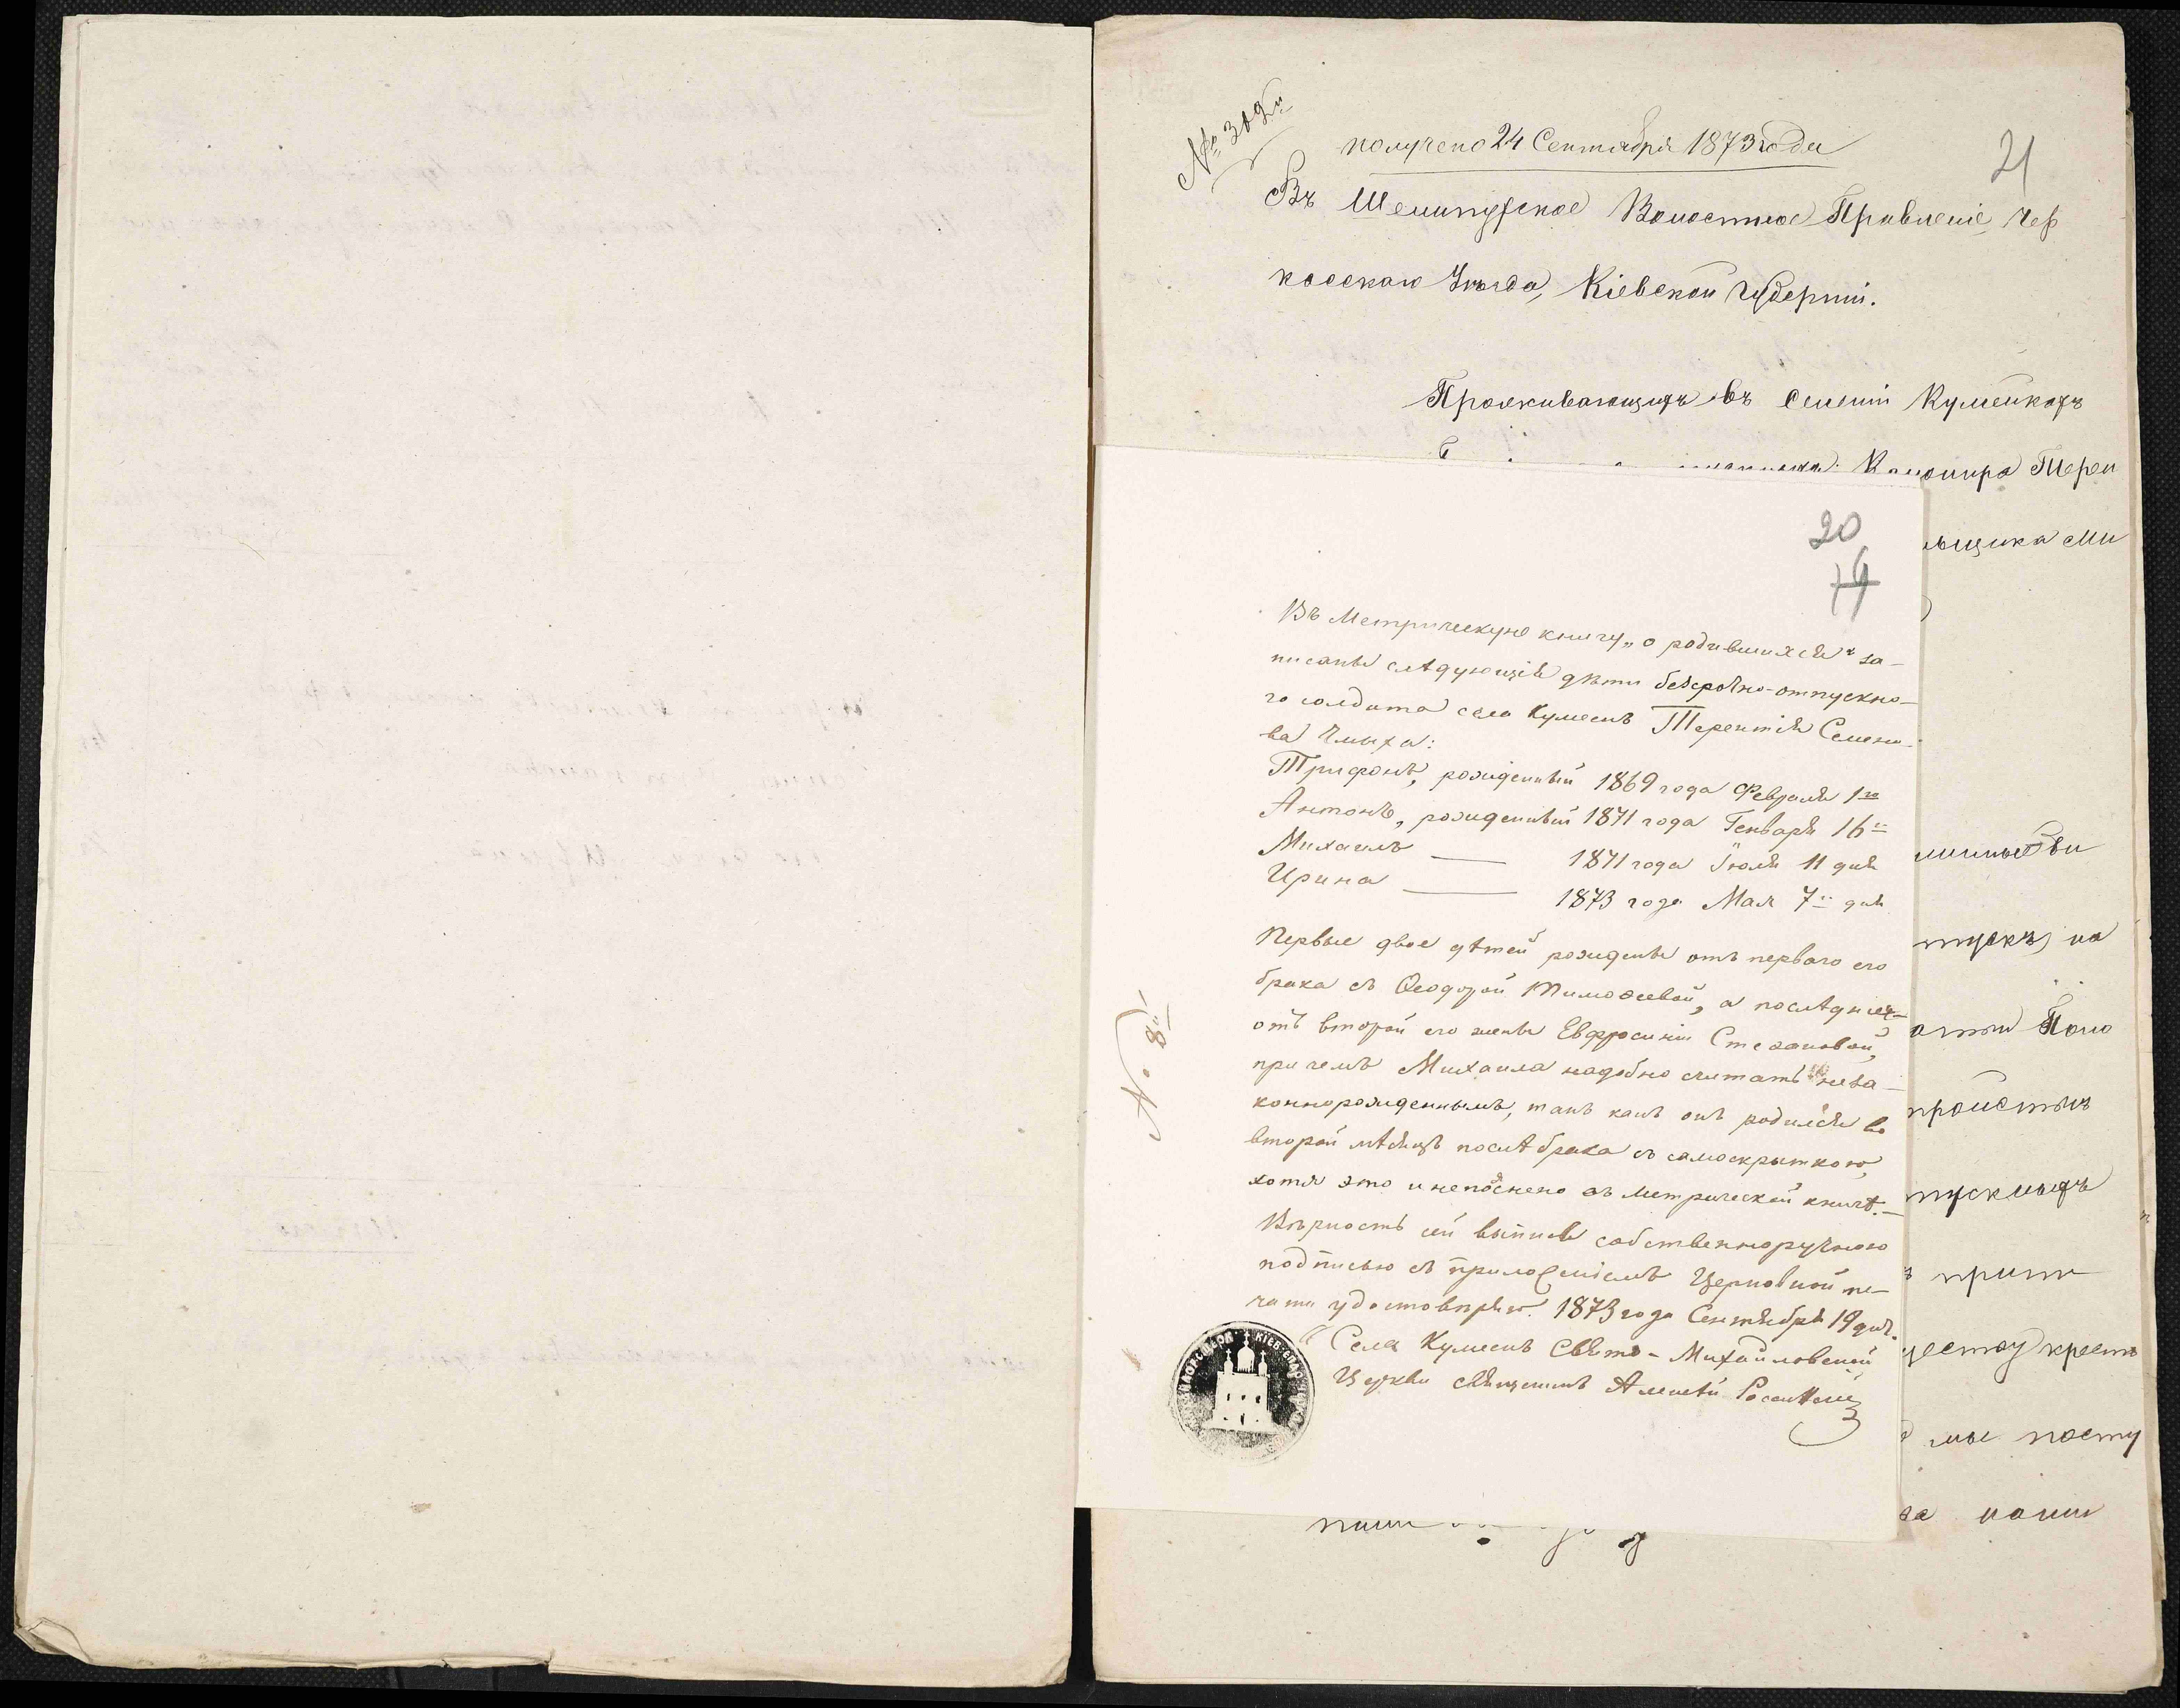 № 3092
получено 24 Сентября 1873 года
21
Въ Шелипухское Волостное Правленіе, Чер
касскаго Уѣзда, Кіевской Губерніи.
Проживающихъ въ селеніи Кумейкахъ
Канонира Терен
льщика Ми
20
Въ Метрическую книгу „о родившихся“ за-
писаны слѣдующія дѣти безсрочно-отпускна-
го солдата села Кумеекъ Терентія Семено-
ва Чмыха:
Трифонъ, рожденный 1869 года Февраля 1го
Антонъ, рожденный 1871 года Генваря 16
Михаилъ — 1871 года Іюля 11 дня
Ирина — 1873 года Мая 7 дня
Первые двое дѣтей рождены отъ перваго его
брака съ Ѳеодорой Тимоѳеевой, а послѣдніе
отъ второй его жены Евфросиніи Степановой,
при чемъ Михаила надобно считать неза-
коннорожденнымъ, такъ какъ онъ родился во
второй мѣсяцъ послѣ брака съ самоскрыткою,
хотя это и непояснено въ метрической книгѣ.—
Вѣрность сей выписи собственноручною
подписью съ приложеніемъ Церковной пе-
чати удостовѣряю. 1873 года Сентября 19 дня.
Села Кумеекъ Свято-Михайловской
Церкви священникъ Алексѣй
№ 8
тускъ) на
тускныхъ
мы посту
наши